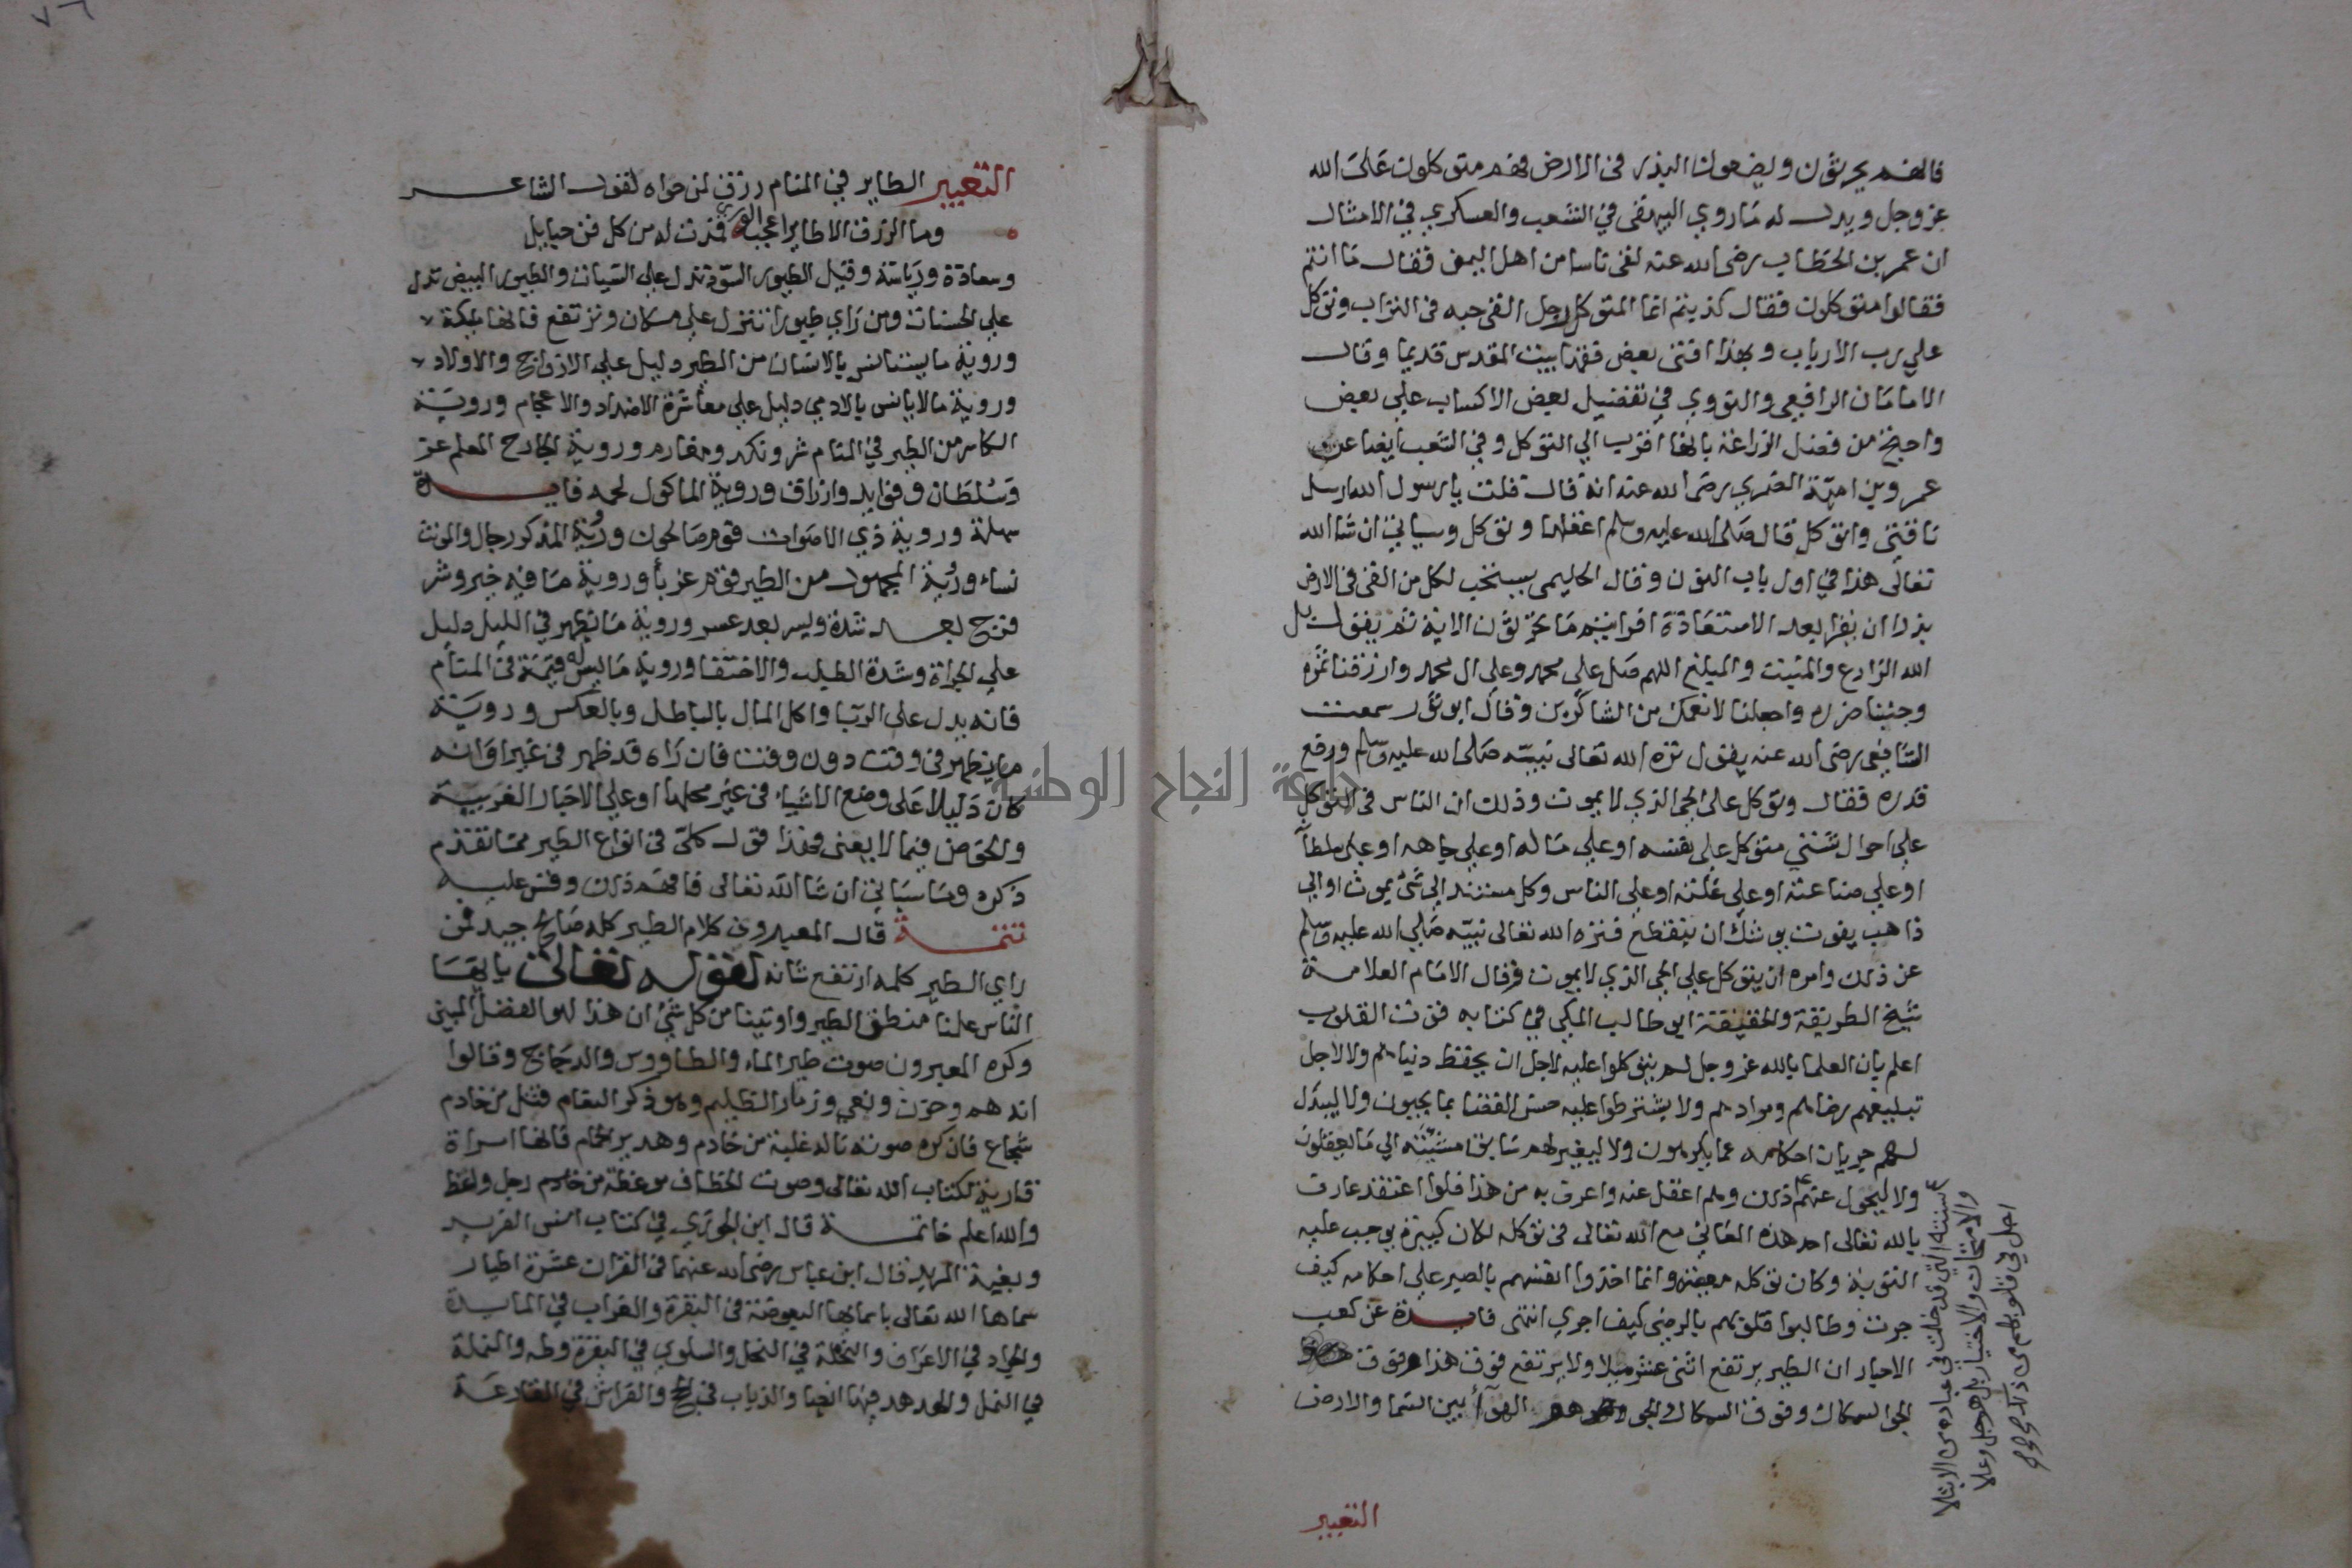 فانهم يحرثون ويضعون البذر في الارض فهم متوكلون على الله
عز وجل ويدل له ما روي البيهقي في الشعب والعسكري في الامثال
ان عمر بن الخطاب رضى الله عنه لقى ناسا من اهل اليمن فقال ما انتم
فقالوا متوكلون فقال كذبتم انما المتوكل رجل القى حبه فى التراب وتوكل
علي رب الارباب وبهذا افتى بعض فقها بيت المقدس قديما وقال
الامامان الرافعي والنووي في تفضيل بعض الاكساب علي بعض
واحتج من فضل الزراعة بانها اقرب الي التوكل وفي الشعب ايضا عن
عمرو بن امية الضمري رضى الله عنه انه قال قلت يا رسول الله ارسل
ناقتى واتوكل قال صلى الله عليه وسلم اعقلها وتوكل وسياتي ان شا الله
تعالى هذا في اول باب النون وقال الحليمى يستحب لكل من القى فى الارض
بذرا ان يقرا بعد الاستعاذة افرايتم ما تحرثون الاية ثم يقول بل
الله الزارع والمنبت والمبلغ اللهم صل علي محمد وعلي ال محمد وارزقنا ثمره
وجنبنا ضرره واجعلنا لانعمك من الشاكرين وقال ابو ثور سمعت
الشافعي رضى الله عنه يقول نزه الله تعالى نبيه صلى الله عليه وسلم ورفع
قدره فقال وتوكل على الحي الذي لا يموت وذلك ان الناس فى التوكل
علي احوال شتي متوكل علي نفسه او علي ماله او علي جاهه او علي سلطانه
او علي صناعته او علي غلته او علي الناس وكل مستند الي شى يموت او الي
ذاهب يفوت يوشك ان ينقطع فنزه الله تعالى نبيه صلى الله عليه وسلم
عن ذلك وامره ان يتوكل علي الحي الذي لا يموت وقال الامام العلامة
شيخ الطريقة والحقيقة ابو طالب المكي في كتابه قوت القلوب
اعلم بان العلما بالله عز وجل لم يتوكلوا عليه لاجل ان يحفظ دنياهم ولا لاجل
تبليغهم رضاهم ومرادهم ولا يشترطوا عليه حسن القضا بما يحبون ولا ليبدل
لهم جريان احكامه عما يكرهون ولا ليغير لهم سابق مشيئته الي ما يعقلون
ولا ليحول عنهم سنته التي قد خلت في عباده من الابتلا
والامتحان والاختبار بل هو جل وعلا
اجل في قلوبهم من ذلك وهم اعقل عنه واعرف به من هذا فلو اعتقد عارف
بالله تعالى احد هذه المعاني مع الله تعالى فى توكله لكان كبيرة يوجب عليه
التوبة وكان توكله معصية وانما اخذوا انفسهم بالصبر علي احكامه كيف
جرت وطالبوا قلوبهم بالرضى كيف اجري انتهى فايدة عن كعب
الاحبار ان الطير يرتفع اثنى عشر ميلا ولا يرتفع فوق هذا وفوق
الجو السكاك وفوق السكاك الجو وهو الهوآ بين السما والارض
التعبير
التعبير الطاير في المنام رزق لمن حواه لقول الشاعر
وما الرزق الا طاير اعجب الورى فمدت له من كل فن حبايل
وسعادة ورياسة وقيل الطيور السود تدل علي السيات والطيور البيض تدل
علي الحسنات ومن راي طيورا تنزل علي مكان وترتفع فانها ملايكة
وروية ما يستانس بالانسان من الطير دليل علي الازواج والاولاد
وروية ما لا يانس بالادمي دليل علي معاشرة الاضداد والاعجام وروية
الكاسر من الطير في المنام شر ونكد ومغارم وروية الجارح المعلم عز
وسلطان وفوايد وارزاق وروية الماكول لحمه فايدة
سهلة وروية ذي الاصوات قوم صالحون وروية المذكر رجال والمونث
نساء وروية المجهول من الطير قوم غربا وروية ما فيه خير وشر
فرج بعد شدة ويسر بعد عسر وروية ما يظهر في الليل دليل
علي الجراة وشدة الطلب والاختفا وروية ما ليس له قيمة فى المنام
فانه يدل على الربا واكل المال بالباطل وبالعكس وروية
ما يظهر فى وقت دون وقت فان راه قد ظهر فى غير اوانه
كان دليلا على وضع الاشياء فى غير محلها او علي الاخبار الغريبة
والخوض فيما لا يعنى وهذا قول كلى فى انواع الطير مما تقدم
ذكره وما سياتي ان شا الله تعالى فافهم ذلك وقس عليه
تتمة قال المعبرون كلام الطير كله صالح جيد فمن
راي الطير كلمه ارتفع شانه لقوله تعالى يا ايها
الناس علمنا منطق الطير واوتينا من كل شئ ان هذا لهو الفضل المبين
وكره المعبرون صوت طير الماء والطاووس والدجاج وقالوا
انه هم وحزن ونعي وزمار الظليم وهو ذكر النعام قتل من خادم
شجاع فان كره صوته ناله غلبة من خادم وهدير الحمام فانها امراة
قارية لكتاب الله تعالى وصوت الخطاف موعظة من خادم رجل واعظ
والله اعلم خاتمة قال ابن الجوزي في كتاب انس الفريد
وبغية المريد قال ابن عباس رضى الله عنهما فى القران عشرة اطيار
سماها الله تعالى باسمايها البعوضة فى البقرة والغراب في المايدة
والجراد في الاعراف والنحلة في النحل والسلوي في البقرة وطه والنملة
في النمل والهدهد فيها ايضا والذباب فى الحج والفراش في القارعة
جامعة النجاح الوطنية